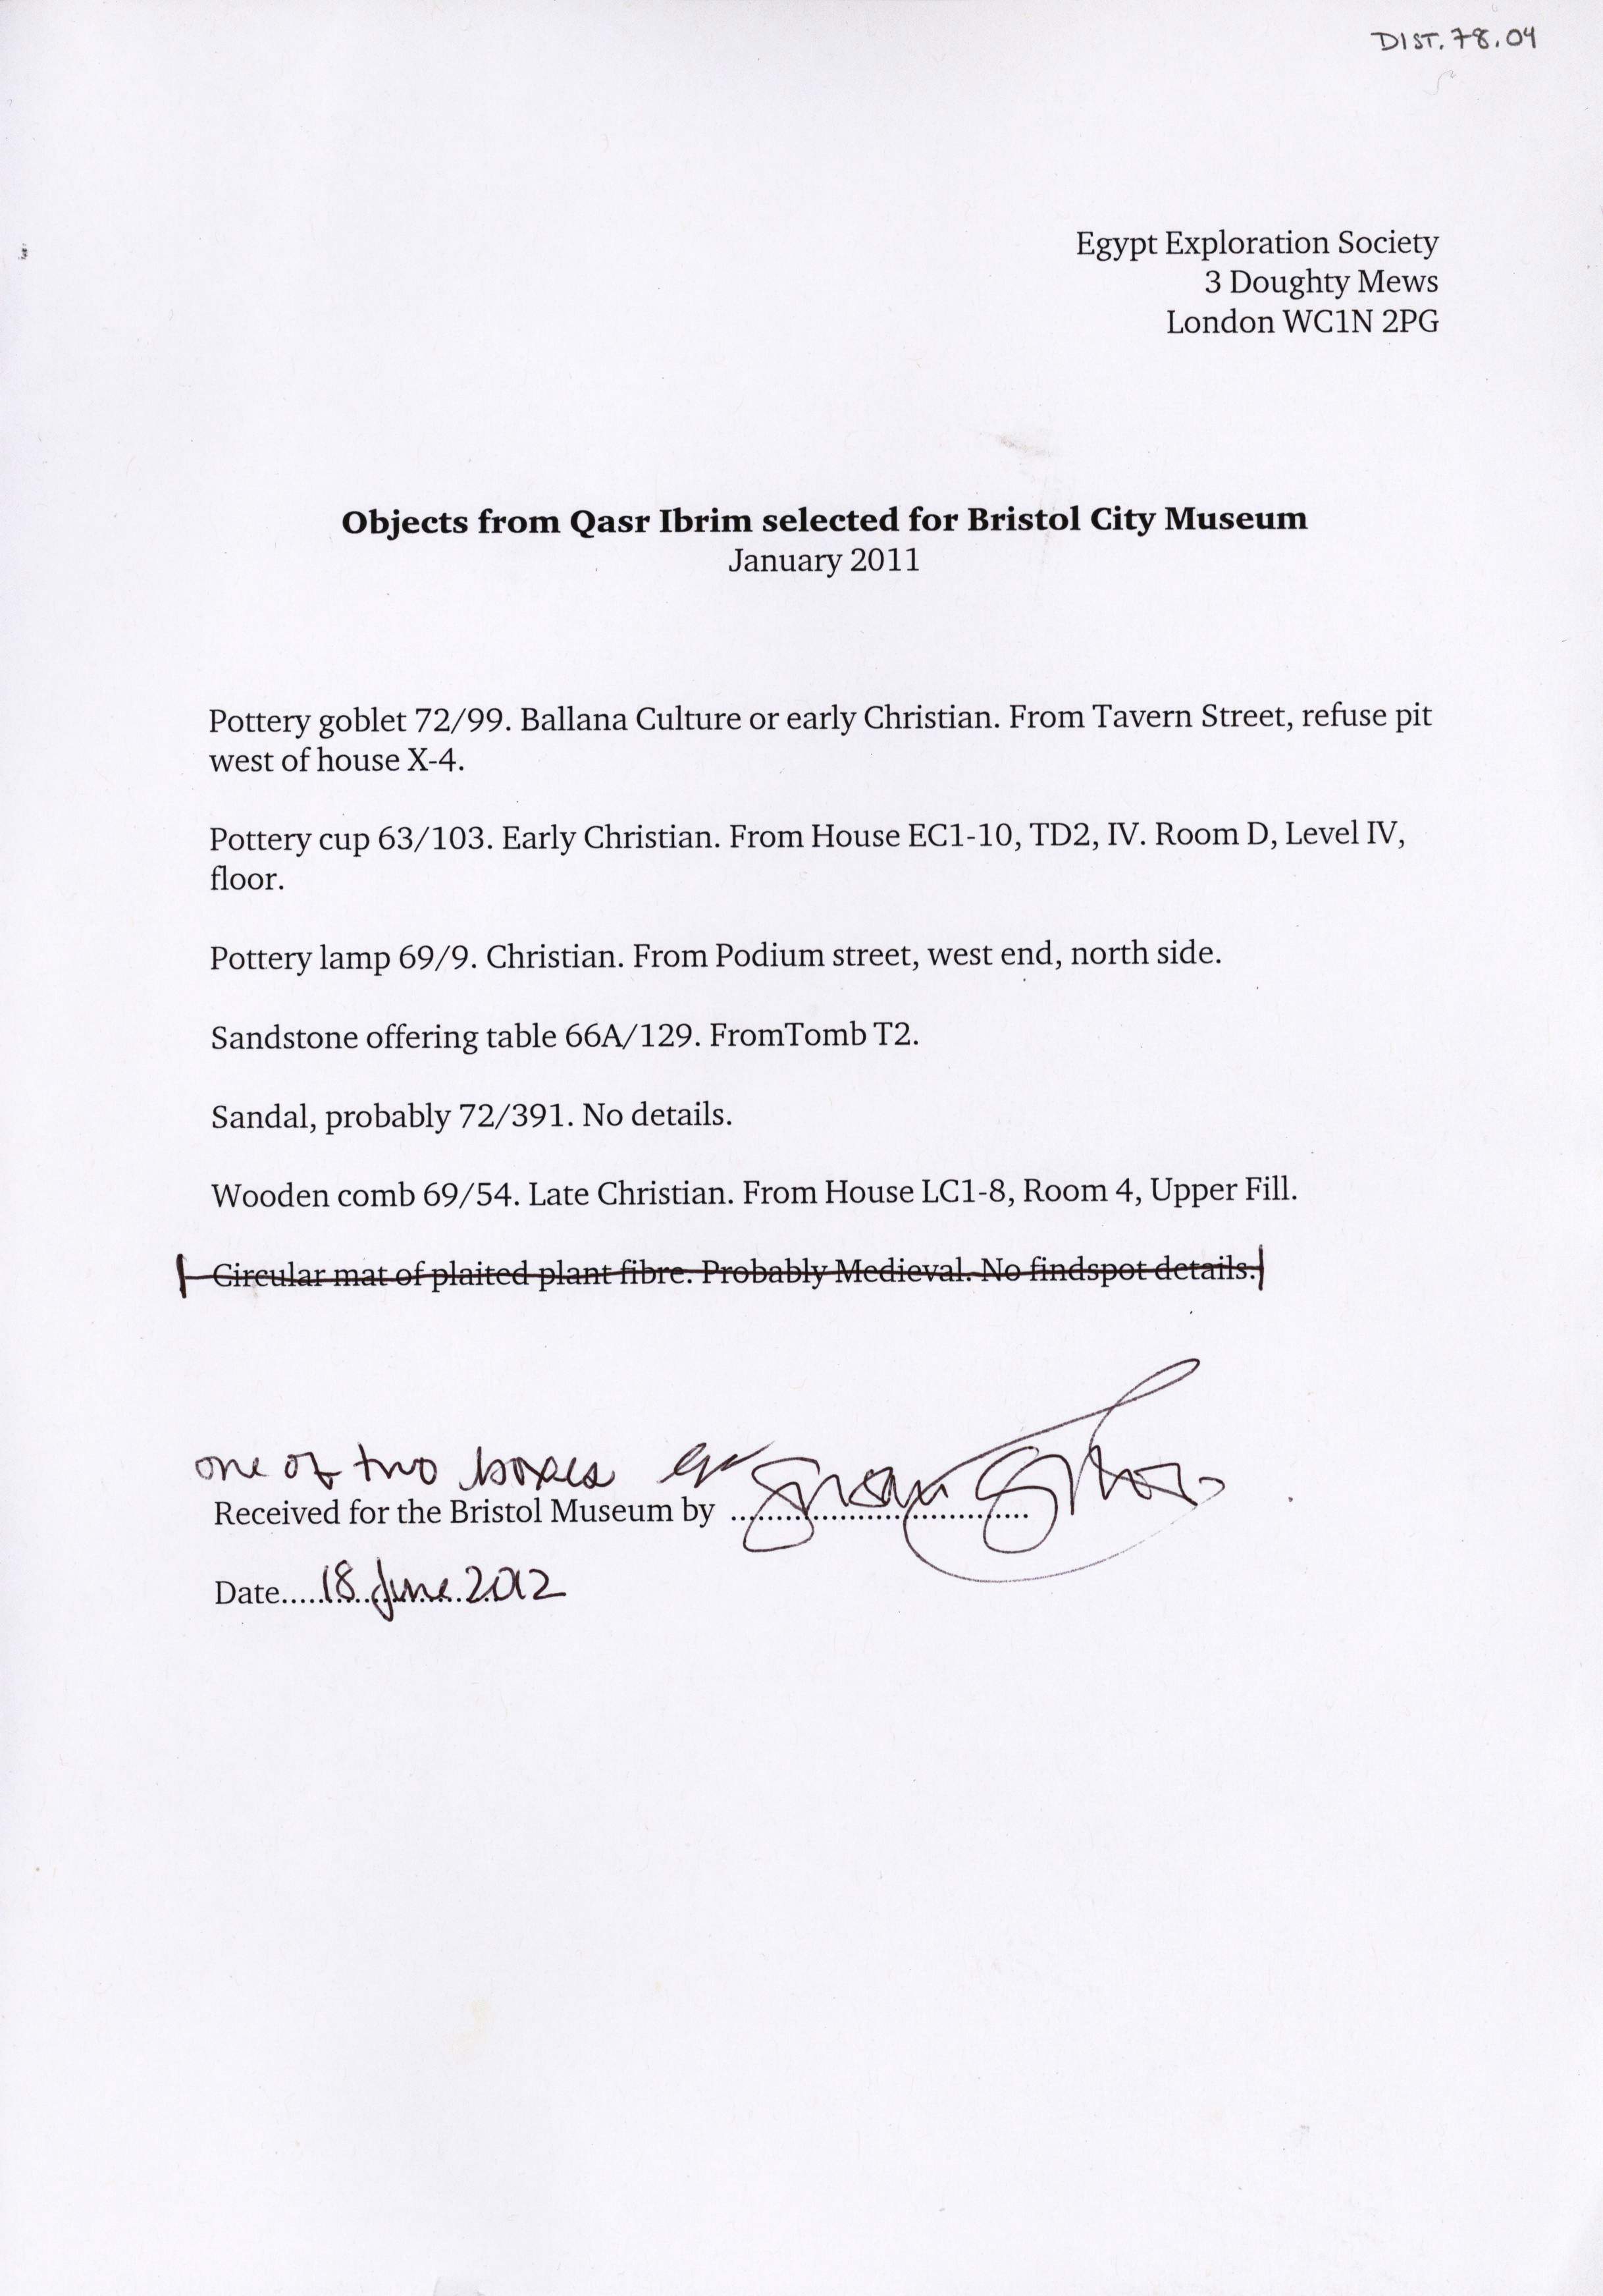 DIST. 78.04
Egypt Exploration Society
3 Doughty Mews
London WC1N 2PG
Objects from Qasr Ibrim selected for Bristol City Museum
January 2011
Pottery goblet 72/99. Ballana Culture or early Christian. From Tavern Street, refuse pit
west of house X-4.
Pottery cup 63/103. Early Christian. From House EC1-10, TD2, IV. Room D, Level IV,
floor.
Pottery lamp 69/9. Christian. From Podium street, west end, north side.
Sandstone offering table 66A/129. FromTomb T2.
Sandal, probably 72/391. No details.
Wooden comb 69/54. Late Christian. From House LC1-8, Room 4, Upper Fill.
Circular mat of plaited plant fibre. Probably Medieval. No findspot details.
one of two boxes
Received for the Bristol Museum by ..............................
Date.....18 June 2012